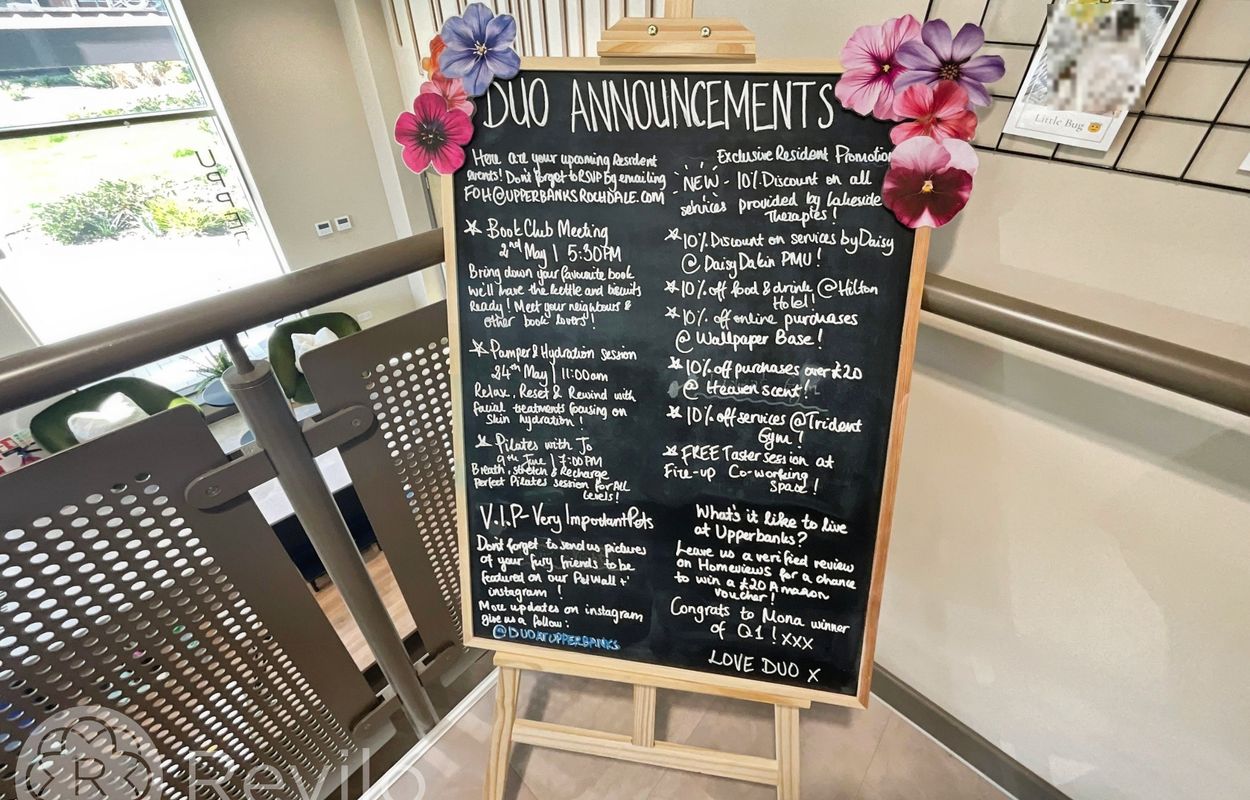 DUO ANNOUNCEMENTS
Here are your upcoming Resident
events! Don't forget to RSVP by emailing
FOH@UPPERBANKSROCHDALE.COM
Book Club Meeting
2nd May | 5:30PM
Bring down your favourite book
we'll have the kettle and biscuits
ready! Meet your neighbours &
other book lovers!
Pamper & Hydration Session
24th May | 11:00am
Relax, Reset & Rewind with
facial treatments focusing on
Skin hydration!
Pilates with Jo
9th June | 7:00PM
Breath, stretch & Recharge
perfect Pilates session for All
levels!
V.I.P - Very Important Pets
Don't forget to send us pictures
of your fury friends to be
featured on our Pet Wall +
instagram !
More updates on instagram
give us a follow:
@DUOATUPPERBANKS
Exclusive Resident Promotion
NEW - 10% Discount on all
services provided by Lakeside
Therapies!
10% Discount on services by Daisy
@ Daisy Dakin PMU!
10% off food & drink @ Hilton
Hotel!
10% off online purchases
@ Wallpaper Base!
10% off purchases over £20
@ Heaven scent!
10% off services @ Trident
Gym!
FREE Taster session at
Fire-up Co-working
Space!
What's it like to live
at Upperbanks?
Leave us a verified review
on Homeviews for a chance
to win a £20 Amazon
voucher!
Congrats to Mona winner
of Q1! xxx
LOVE DUO X
Little Bug 😇
UPPER
R Revilo